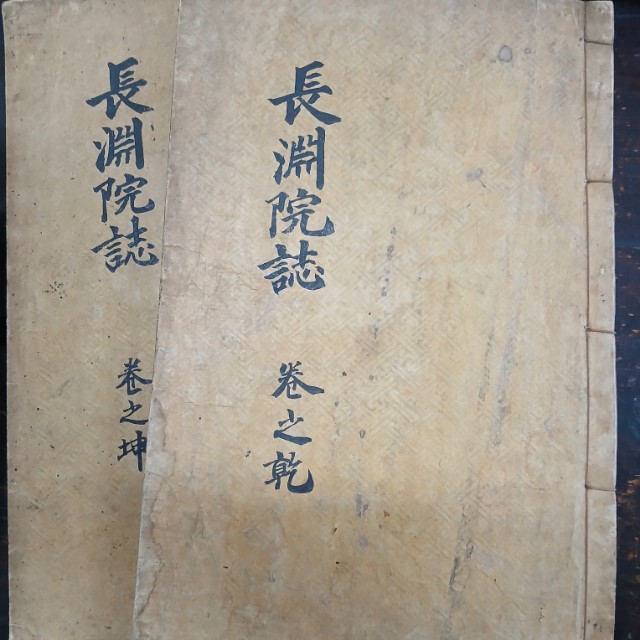 長淵院誌
卷之乾
長淵院誌
卷之坤